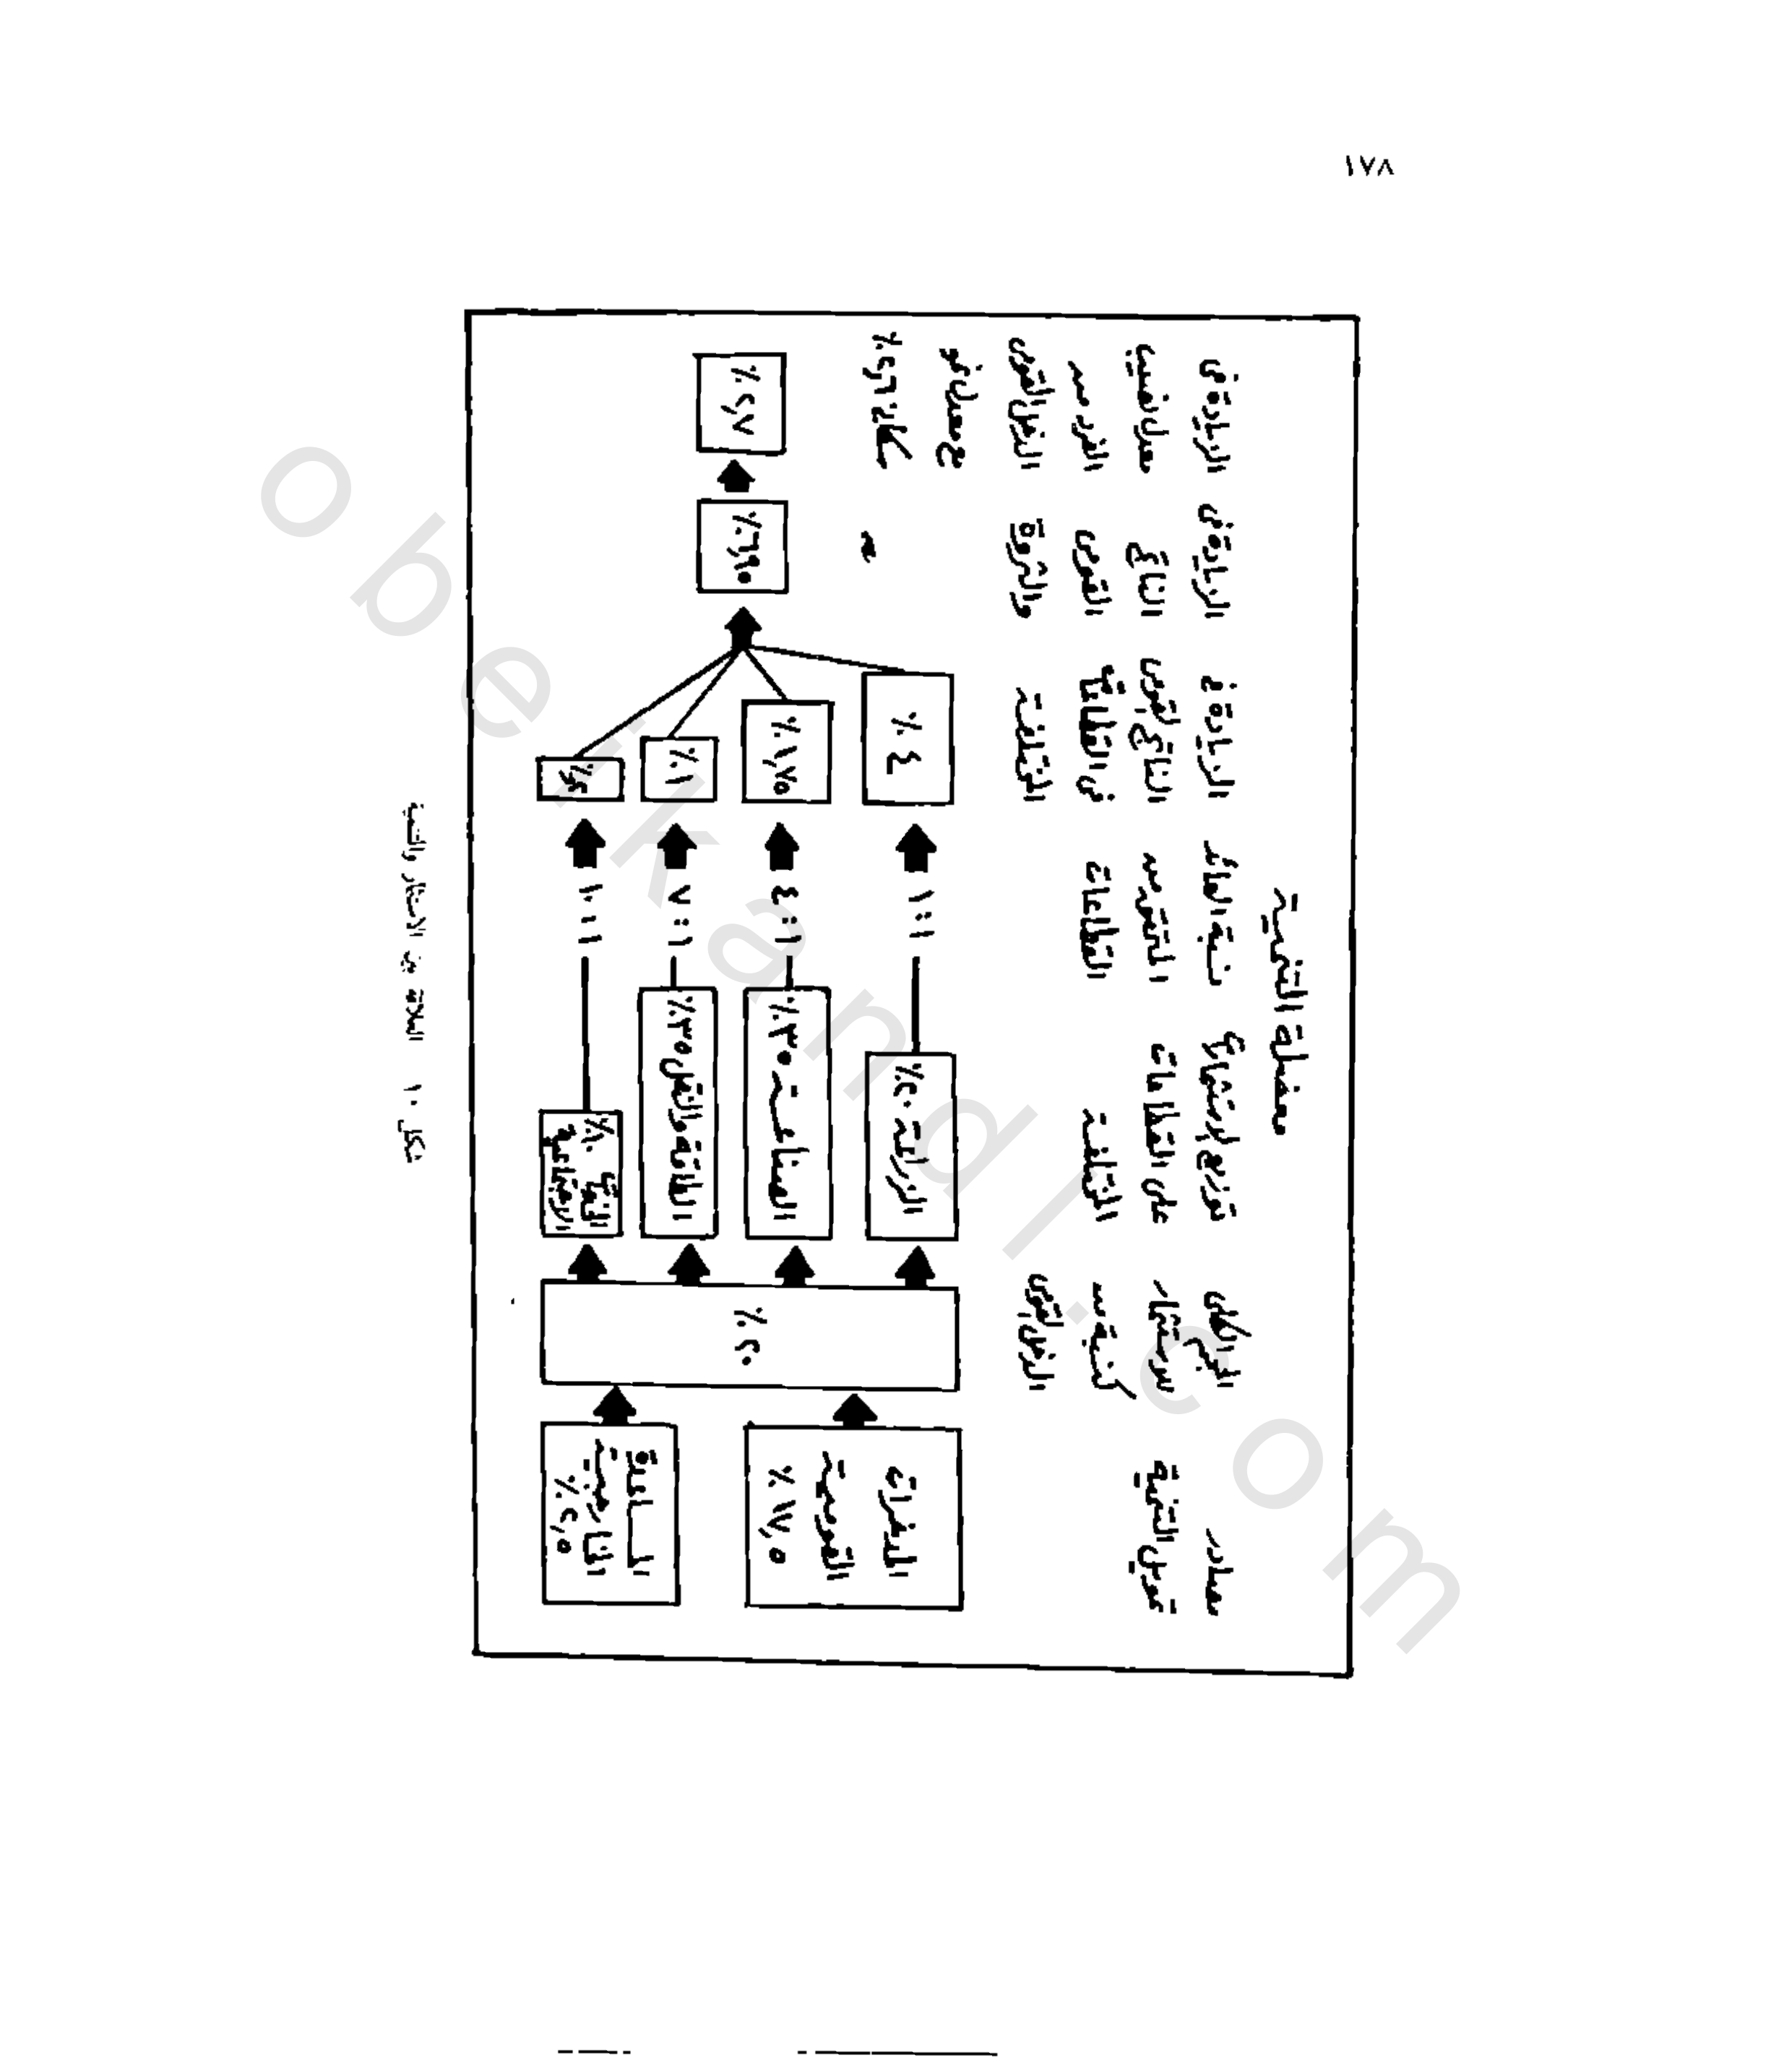 ١٧٨
معضلة التنمية
مصادر
تمويل التنمية
الحجم الكلى
للاستثمار
كنسبة من
الدخل القومى
توزيع الاستثمار
على القطاعات
المختلفة
نسبة العائد
المتحقق من
القطاعات
الزيادة
الناتج القومى
فى القطاعات
المختلفة
الزيادة فى
الناتج
القومى
والثروة
الزيادة فى
معدل نصيب
الفرد من
الدخل القومى
مع معدل نمو
سكان ٢٫٦٪
المدخرات
القومية
١٧٫٥٪
المساعدة
الخارجية
٢٫٥٪
٢٠٪
الزراعة ٢٠٪
١:١
٤٪
الصناعة ٣٥٪
٤:١
٨٫٧٥٪
الطاقة والنقل ٣٥٪
٧:١
١٪
الاجتماعية
١٠:١
٦٫٩٥٪
٢٫٧٪
شكل ١٠ العلاقة بين الاستثمار والتنمية
obeikandl.com